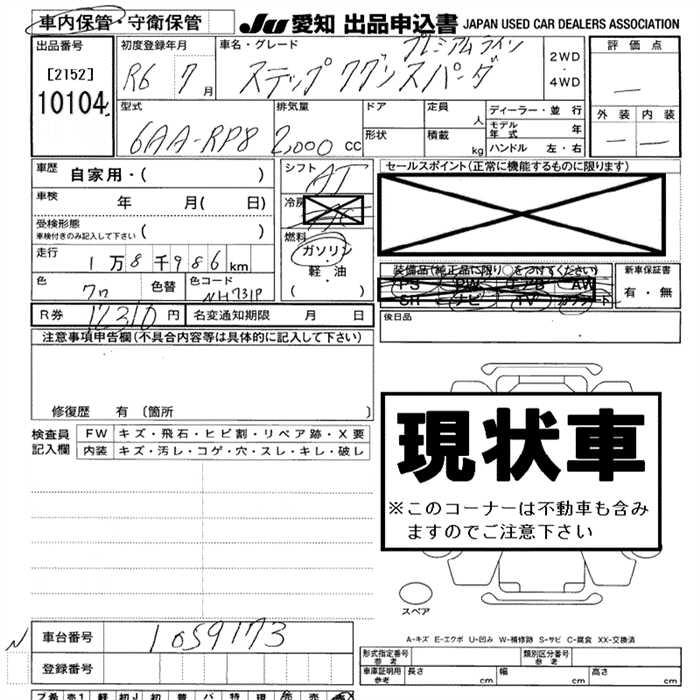 車内保管・守衛保管 JU 愛知 出品申込書 JAPAN USED CAR DEALERS ASSOCIATION
出品番号 初度登録年月 車名・グレード プレミアムライン 評価点
[2152] R6 7月 ステップワゴンスパーダ 2WD・4WD —
10104 外装 内装
型式 排気量 ドア 定員 人 ディーラー・並行
6AA-RP8 2,000 cc 形状 積載 kg モデル年式 年 — —
ハンドル 左・右
車歴 自家用・( ) シフト AT セールスポイント(正常に機能するものに限ります)
車検 年 月( 日) 冷房
受検形態 車検付きのみ記入して下さい ( ) 燃料
走行 1万8千986km ガソリン・軽油 装備品(純正品に限り○をつけてください) 新車保証書
PS PW エアB AW 有・無
SH ナビ TV
色 クロ 色替 色コード NH731P ( )
R券 12310円 名変通知期限 月 日 後日品
注意事項申告欄(不具合内容等は具体的に記入して下さい)
修復歴 有〔箇所 〕
検査員記入欄 FW キズ・飛石・ヒビ割・リペア跡・X要
内装 キズ・汚レ・コゲ・穴・スレ・キレ・破レ
現状車
※このコーナーは不動車も含み
ますのでご注意下さい
スペア
A-キズ E-エクボ U-凹み W-補修跡 S-サビ C-腐食 XX-交換済
N 車台番号 1059173
登録番号
形式指定番号 参考 類別区分番号 参考
車庫証明用 参考 長さ 幅 高さ
cm cm cm